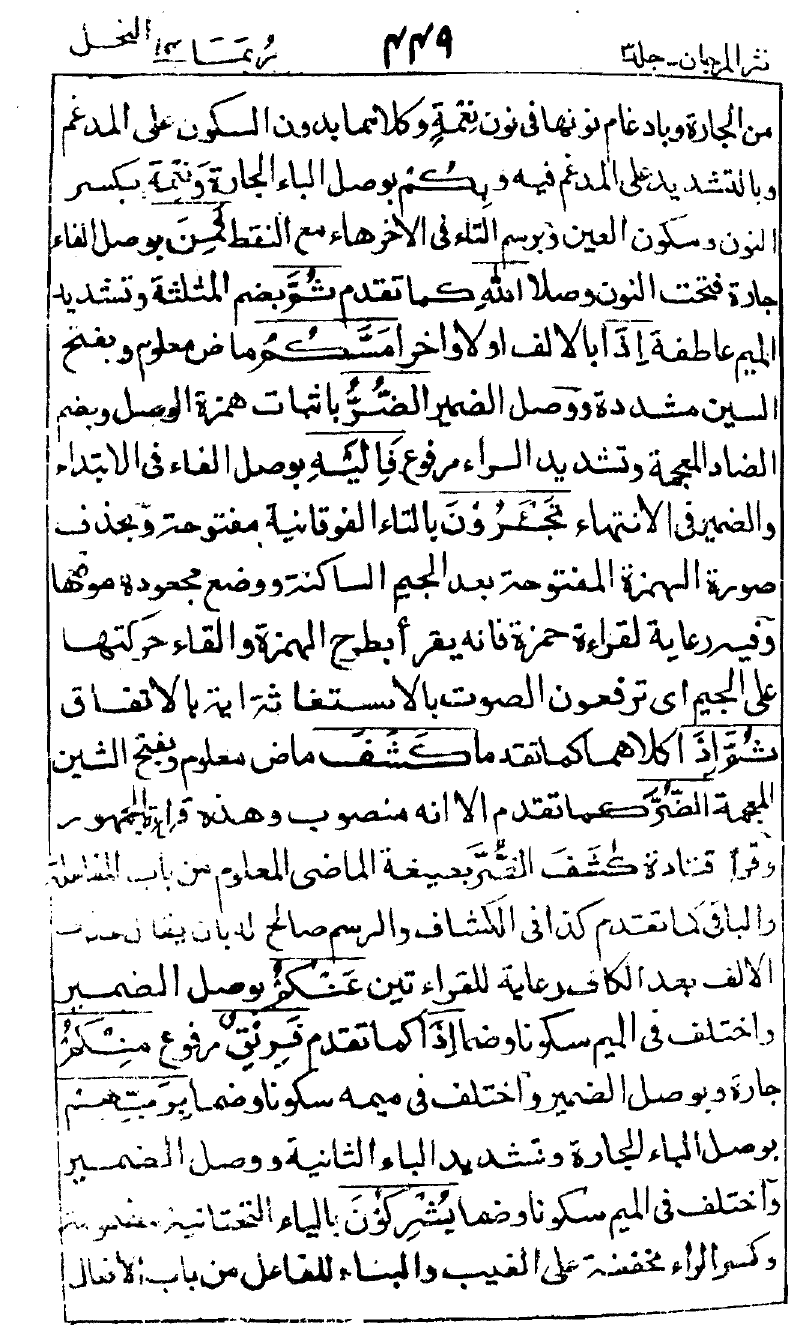 نثر المرجان - جلد ٣ ٤٤٩ ربما ١٤ النحل
من الجارة وبادغام نونها فى نون نِعْمَةٍ وكلاهما بدون السكون على المدغم
وبالتشديد على المدغم فيه وبِكُمْ بوصل الباء الجارة وَنِعْمَة بكسر
النون وسكون العين وبرسم التاء فى الاخر هاء مع النقط فَمِنَ بوصل الفاء
جارة فتحت النون وصلا اللهِ كما تقدم ثُمَّ بضم المثلثة وتشديد
الميم عاطفة إِذَا بالالف اولا واخرا مَسَّكُمُ ماض معلوم وبفتح
السين مشددة ووصل الضمير الضُّرُّ باثبات همزة الوصل وبضم
الضاد المعجمة وتشديد الراء مرفوع فَإِلَيْهِ بوصل الفاء فى الابتداء
والضمير فى الانتهاء تَجْـَٔرُوْنَ بالتاء الفوقانية مفتوحة وبحذف
صورة الهمزة المفتوحة بعد الجيم الساكنة ووضع مجعودة موضعها
وفيه رعاية لقراءة حمزة فانه يقرأ بطرح الهمزة والقاء حركتها
على الجيم اى ترفعون الصوت بالاستغاثة اية بالاتفاق
ثُمَّ إِذَا كلاهما كما تقدما كَشَفَ ماض معلوم وبفتح الشين
المعجمة الضُّرَّ كما تقدم الا انه منصوب وهذه قراءة الجمهور
وقرأ قتادة كٰشَفَ الضُّرَّ بصيغة الماضى المعلوم من باب المفاعلة
والباقى كما تقدم كذا فى الكشاف والرسم صالح له بان يقال
الالف بعد الكاف رعاية للقراءتين عَنْكُمْ بوصل الضمير
واختلف فى الميم سكونا وضما إِذَا كما تقدم فَرِيْقٌ مرفوع مِنْكُمْ
جارة وبوصل الضمير واختلف فى ميمه سكونا وضما بِرَبِّهِمْ
بوصل الباء الجارة وتشديد الباء الثانية ووصل الضمير
واختلف فى الميم سكونا وضما يُشْرِكُوْنَ بالياء التحتانية مضمومة
وكسر الراء مخففة على الغيب والبناء للفاعل من باب الافعال